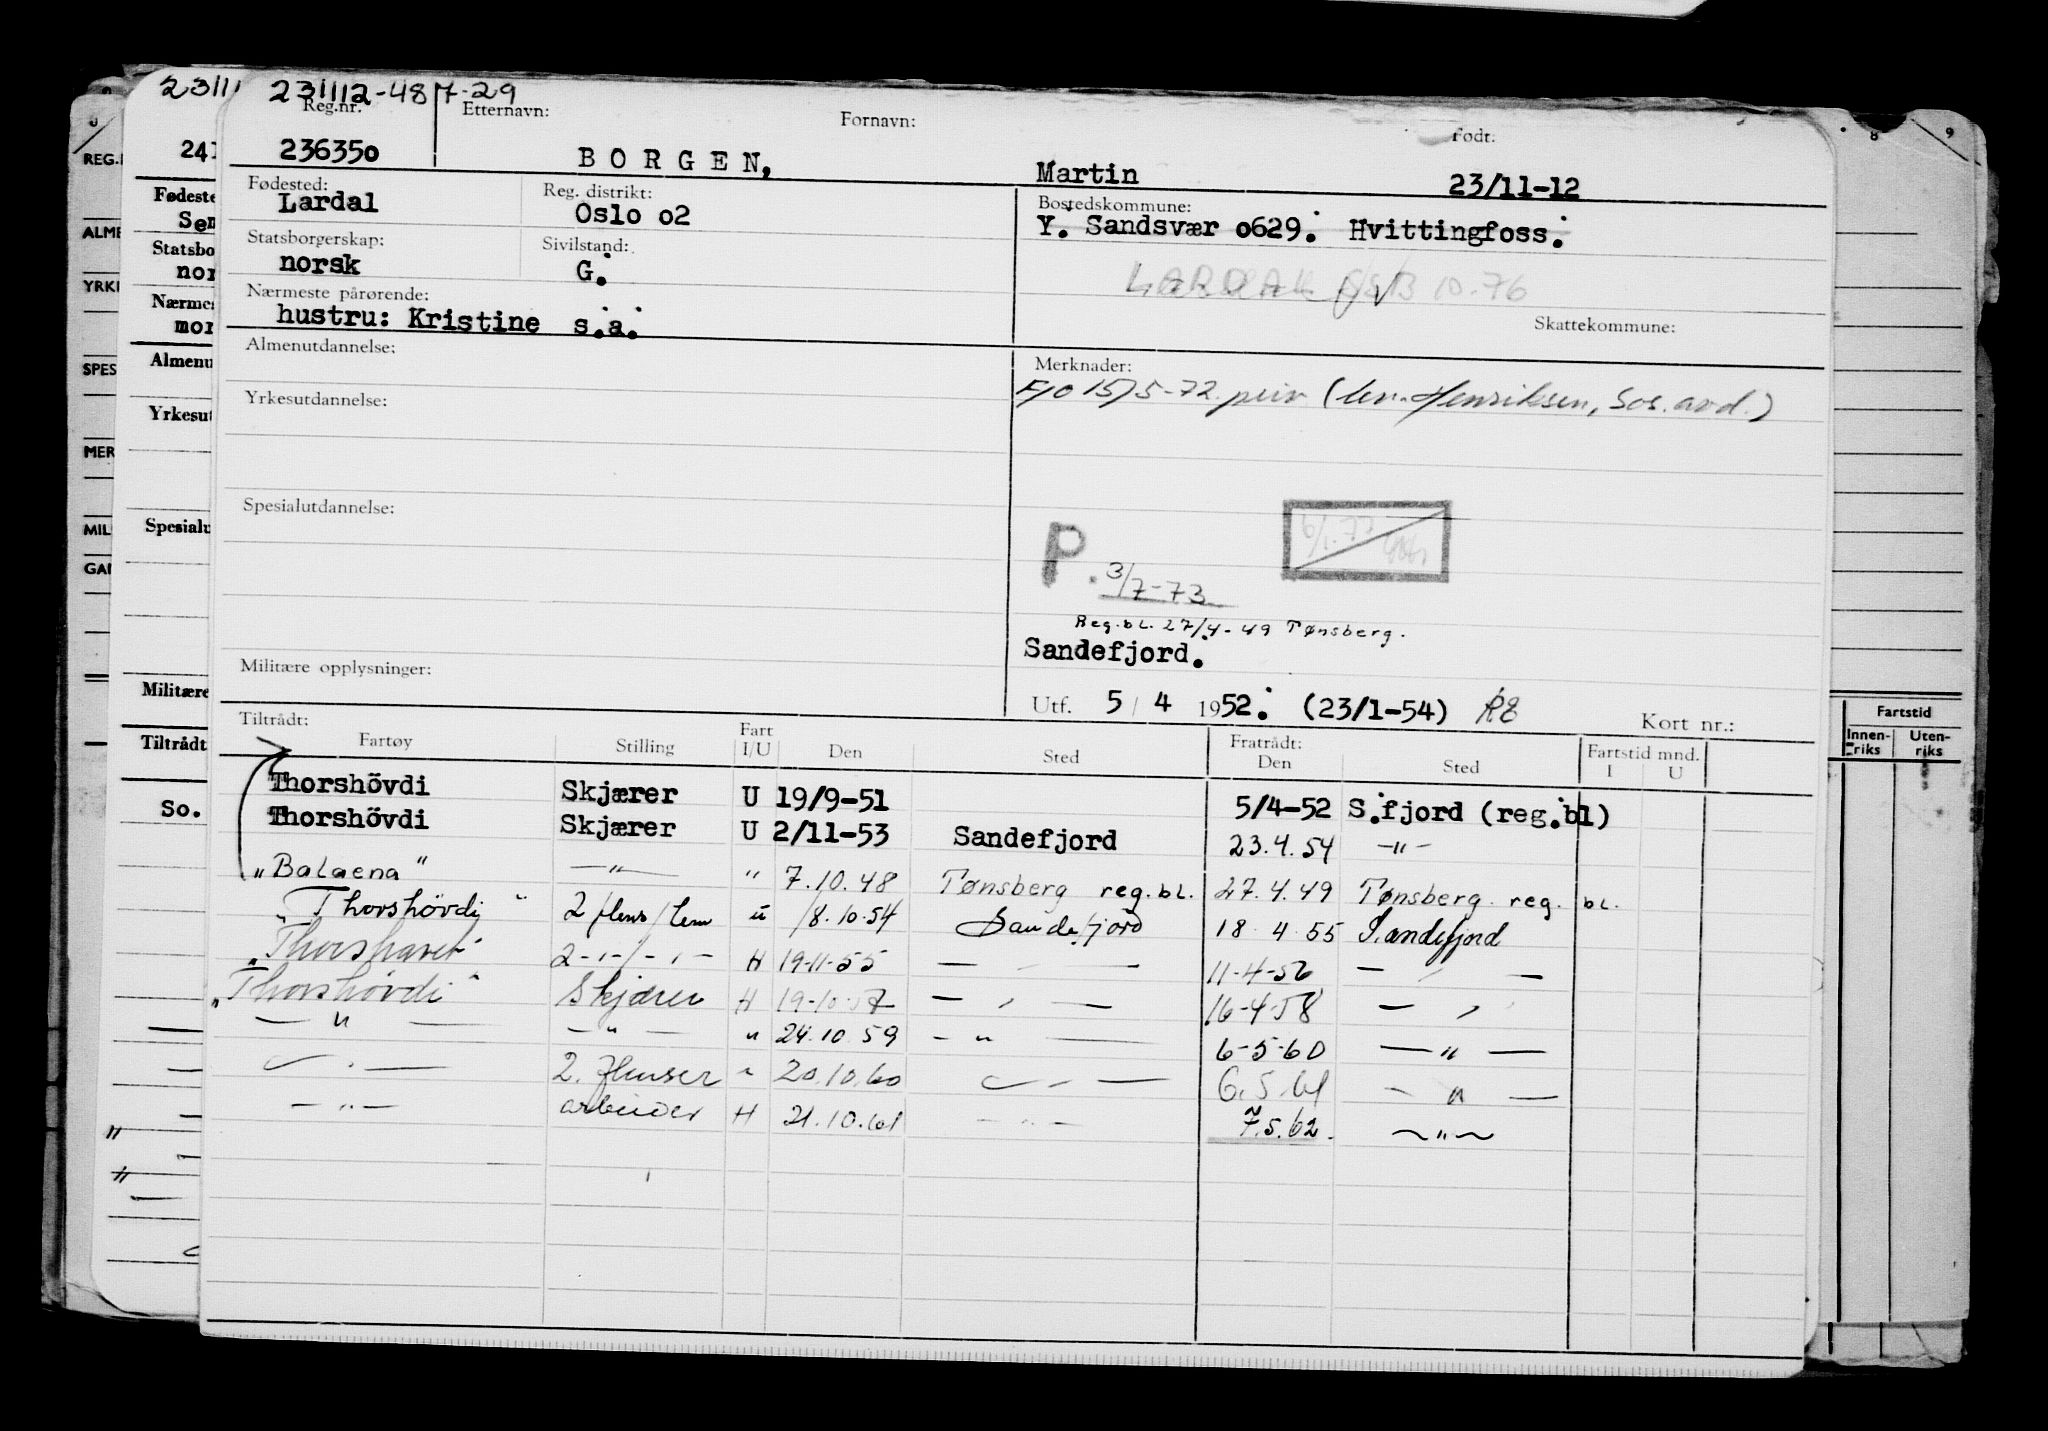 231112-487-29
Reg.nr. Etternavn: Fornavn: Født:
236350 BORGEN, Martin 23/11-12
Fødested: Reg. distrikt: Bostedskommune:
Lardal Oslo o2 Y. Sandsvær o629. Hvittingfoss.
Statsborgerskap: Sivilstand:
norsk G.
LARDAL 10.76
Nærmeste pårørende:
hustru: Kristine s.a.
Skattekommune:
Almenutdannelse: Merknader:
15/5-72 Henriksen, Sos. avd.)
Yrkesutdannelse:
Spesialutdannelse:
P. 3/7-73
Reg.bl. 27/4-49 Tønsberg.
Sandefjord.
Militære opplysninger:
Utf. 5/4 1952. (23/1-54)
Kort nr.:
Tiltrådt: Fratrådt:
Fartøy Stilling Fart I/U Den Sted Den Sted Fartstid mnd. I U
Thorshövdi Skjærer U 19/9-51 5/4-52 S.fjord (reg.bl)
Thorshövdi Skjærer U 2/11-53 Sandefjord 23.4.54 -"-
"Balaena" -"- " 7.10.48 Tønsberg reg.bl. 27.4.49 Tønsberg reg. bl.
"Thorshövdi" 2 flens/lem u 18.10.54 Sandefjord 18.4.55 Sandefjord
"Thorshavet" 2-"-/-"- H 19-11-55 -"- 11-4-56 -"-
"Thorshövdi" Skjærer H 19-10-57 -"- 16-4-58 -"-
-"- -"- " 24.10.59 -"- 6-5-60 -"-
-"- 2. flenser " 20.10.60 -"- 6.5.61 -"-
-"- arbeider H 21.10.61 -"- 7.5.62. -"-
Fartstid
Innen-riks Uten-riks